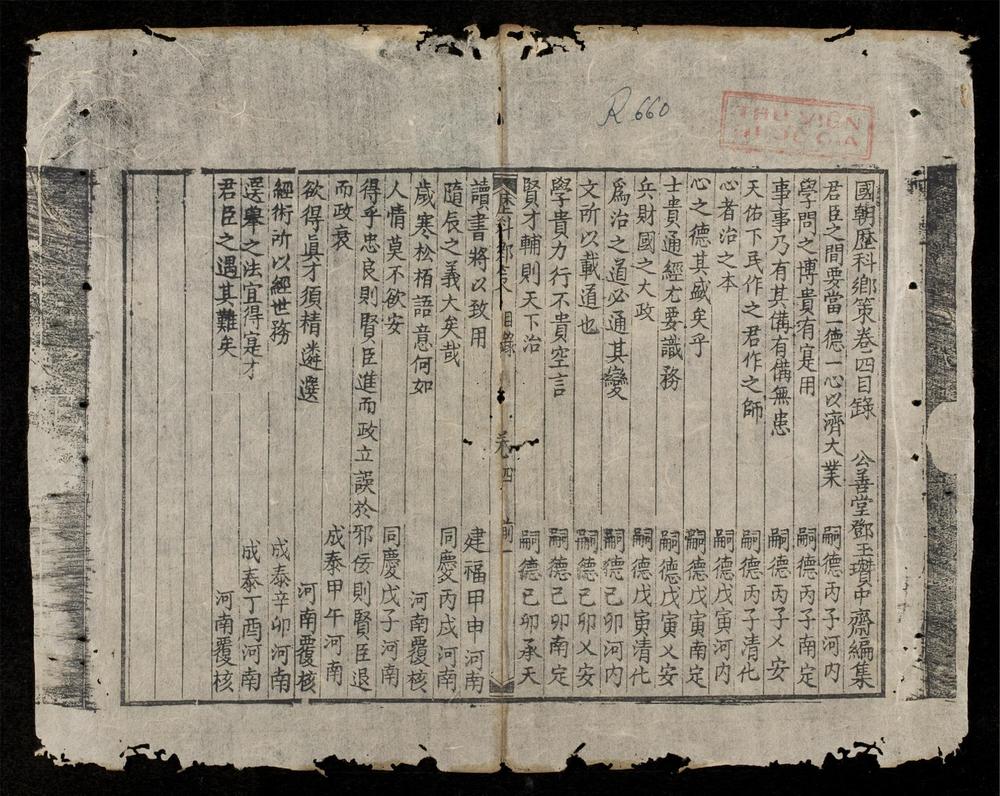 R.660
THƯ VIỆN
國朝歷科鄉策卷四目錄 公善堂鄧玉瓚中齋編集
君臣之間要當一德一心以濟大業 嗣德丙子河内
學問之博貴有寔用 嗣德丙子南定
事事乃有其備有備無患 嗣德丙子乂安
天佑下民作之君作之師 嗣德丙子清化
心者治之本 嗣德戊寅河内
心之德其盛矣乎 嗣德戊寅南定
士貴通經尤要識務 嗣德戊寅乂安
兵財國之大政 嗣德戊寅清化
爲治之道必通其變 嗣德己卯河内
文所以載道也 嗣德己卯乂安
學貴力行不貴空言 嗣德己卯南定
賢才輔則天下治 嗣德己卯承天
歷科鄉策 目錄 卷四 前一
讀書將以致用 建福甲申河南
隨辰之義大矣哉 同慶丙戌河南
歲寒松栢語意何如 河南覆核
人情莫不欲安 同慶戊子河南
得乎忠良則賢臣進而政立誤於邪佞則賢臣退
而政衰 成泰甲午河南
欲得眞才須精遴選 河南覆核
經術所以經世務 成泰辛卯河南
選舉之法宜得寔才 成泰丁酉河南
君臣之遇其難矣 河南覆核